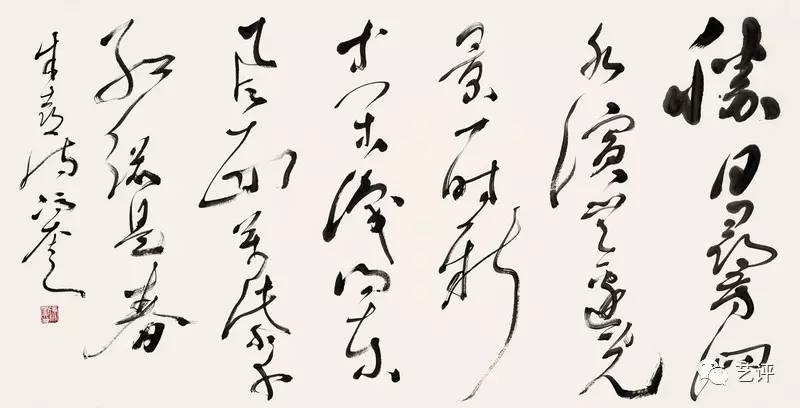 勝日尋芳泗
水濱無邊光
景一時新
等閒識得東
風面萬紫千
紅總是春
朱熹詩
艺评